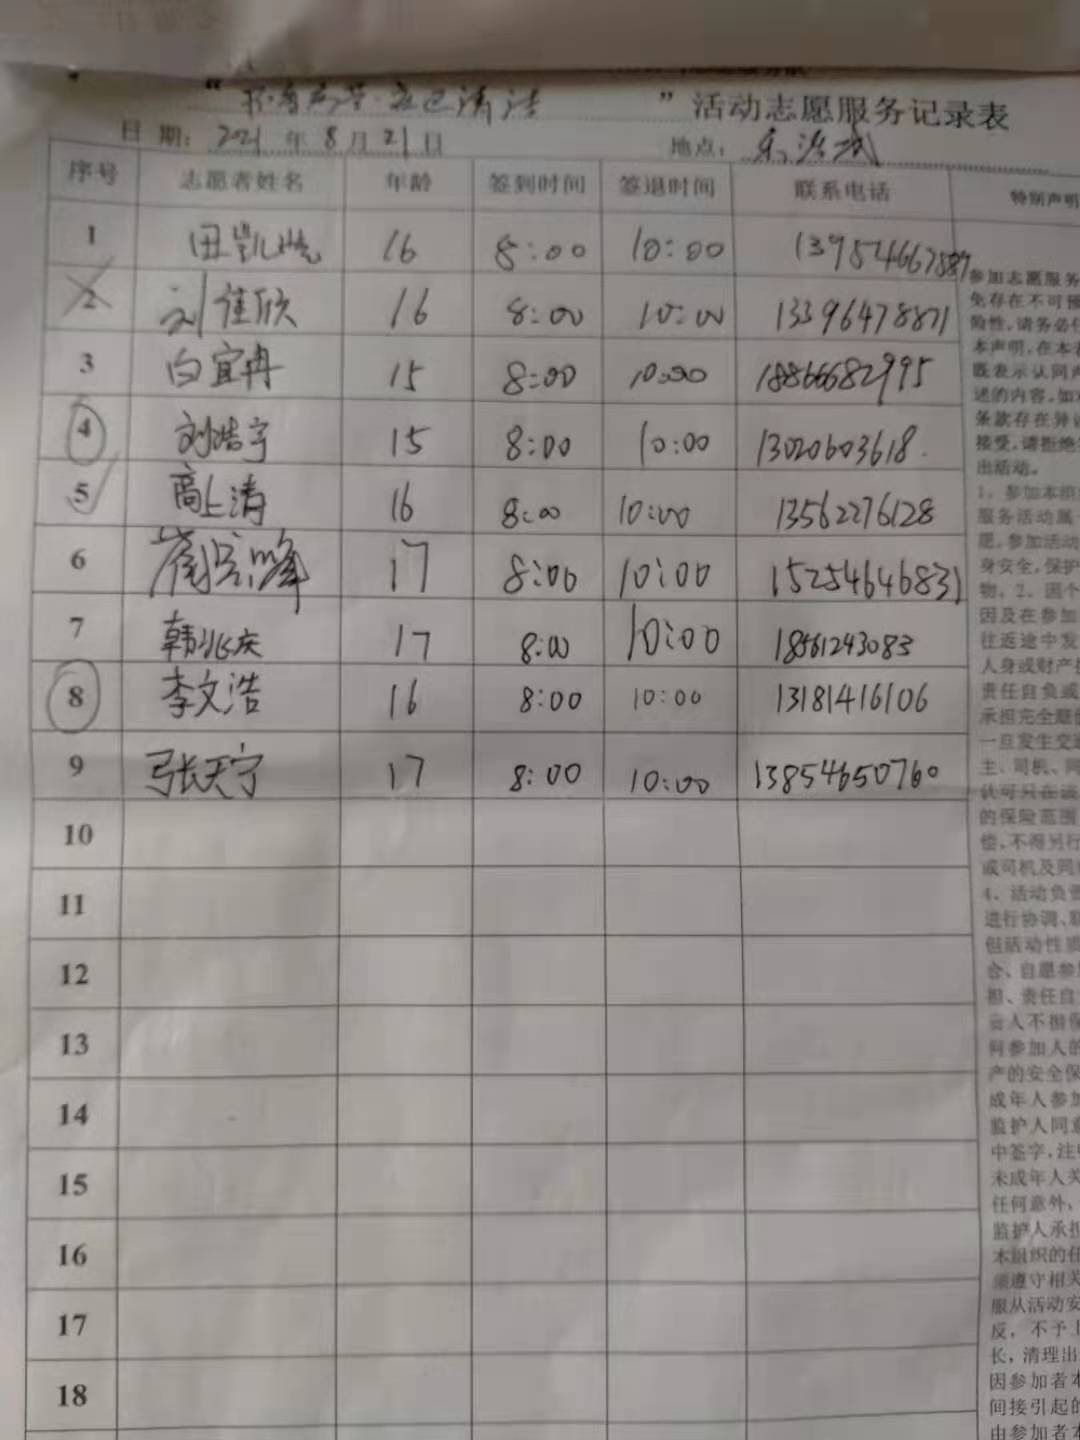 ”活动志愿服务记录表
日期： 2021 年 8 月 21 日 地点：
序号 志愿者姓名 年龄 签到时间 签退时间 联系电话 特别声明
1 田凯 16 8:00 10:00
2 刘佳欣 16 8:00 10:00 13396478871
3 白宜冉 15 8:00 10:00 18866682995
4 刘浩宇 15 8:00 10:00 13020603618
5 商上涛 16 8:00 10:00 13562276128
6 17 8:00 10:00 15254646831
7 韩兆庆 17 8:00 10:00 18561243083
8 李文浩 16 8:00 10:00 13181416106
9 张天宁 17 8:00 10:00 13854650760
10
11
12
13
14
15
16
17
18
参加志愿服务
免存在不可预
险性,请务必仔
本声明,在本表
既表示认同声
述的内容,如对
条款存在异议
接受,请拒绝
出活动。
1、参加本组
服务活动属
愿,参加活动
身安全,保护
物。2、因个
因及在参加
往返途中发
人身或财产
责任自负或
承担完全赔偿
一旦发生交通
主、司机、同
认可只在该
的保险范围
偿,不得另行
或司机及同
4、活动负责
进行协调、联
但活动性质
合、自愿参
担、责任自
责人不担保
何参加人的
产的安全保
成年人参加
监护人同意
中签字,注明
未成年人关
任何意外,
监护人承担
本组织的任
须遵守相关
服从活动安
反，不予
长，清理出
因参加者本
间接引起的
由参加者本